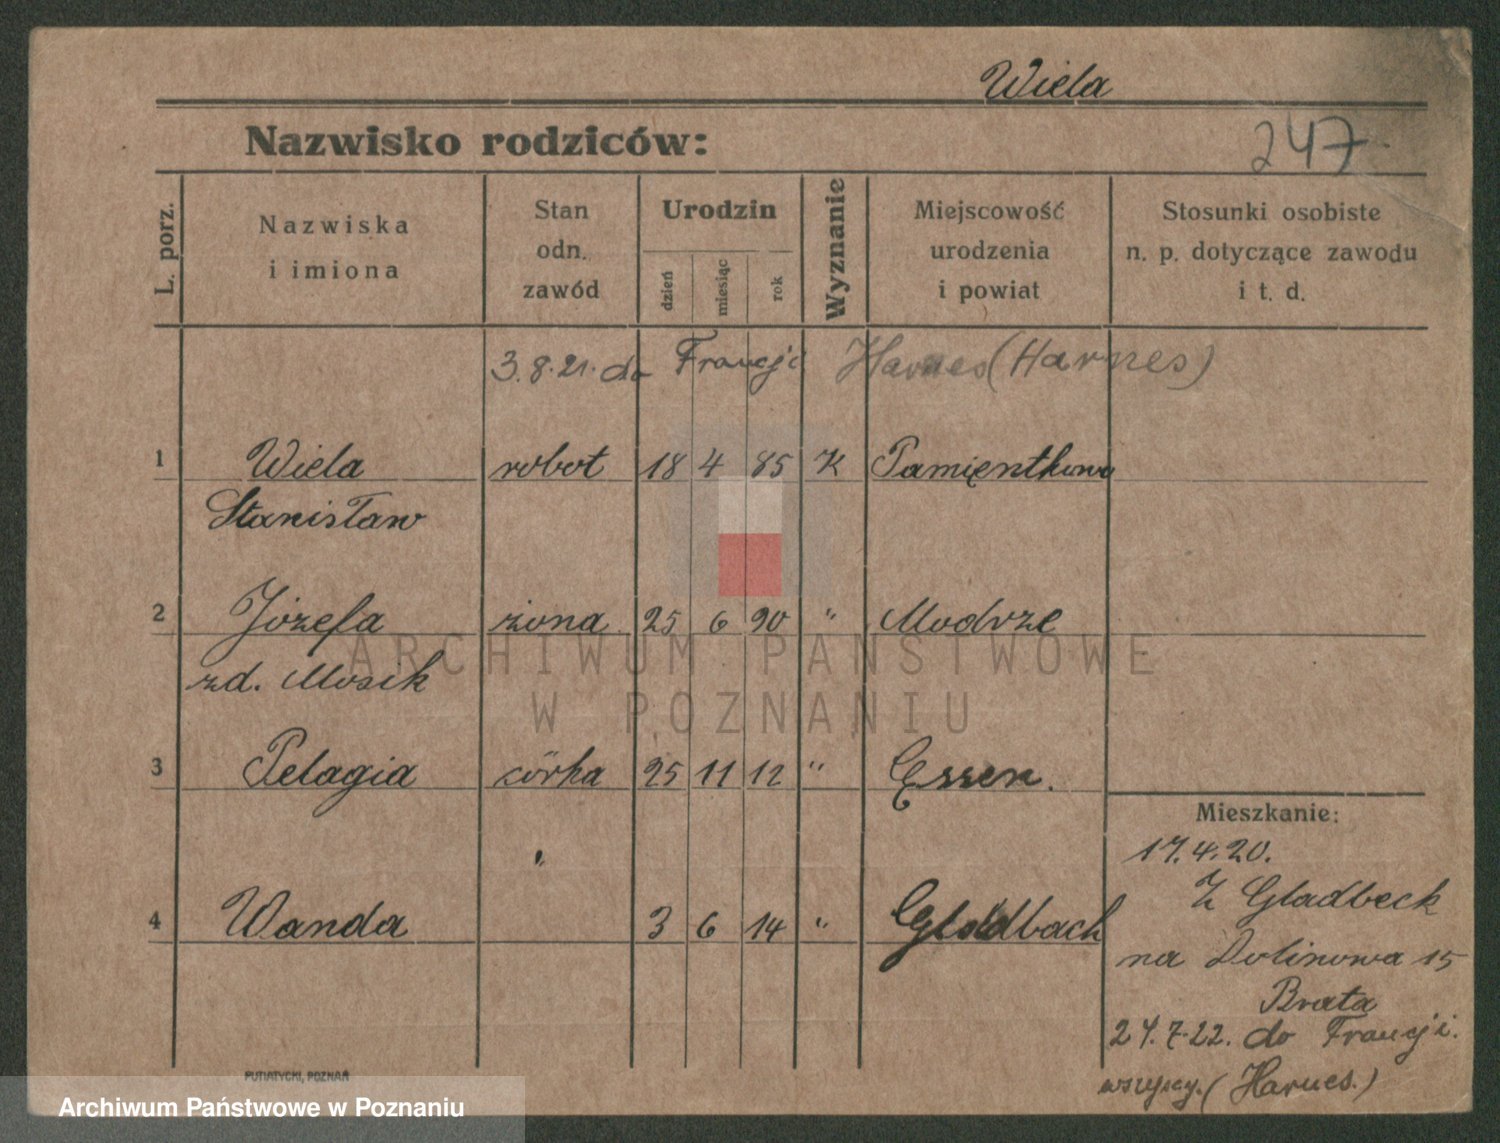 Wiela
Nazwisko rodziców:
247
L. porz.
Nazwiska
i imiona
Stan
odn.
zawód
Urodzin
dzień
miesiąc
rok
Wyznanie
Miejscowość
urodzenia
i powiat
Stosunki osobiste
n. p. dotyczące zawodu
i t. d.
3.8.21. do Francji Harnes (Harnes)
1 Wiela robot 18 4 85 K Pamięntkowo
Stanisław
2 Józefa żona 25 6 90 " Modrze
zd. Mosik
ARCHIWUM PAŃSTWOWE
W POZNANIU
3 Pelagia córka 25 11 12 " Essen.
Mieszkanie:
17.4.20.
"
Z Gladbeck
4 Wanda 3 6 14 " Gladbach
na Dolinowa 15
Brata
24.7.22. do Francji.
wszyscy. (Harnes.)
PUTIATYCKI, POZNAŃ
Archiwum Państwowe w Poznaniu